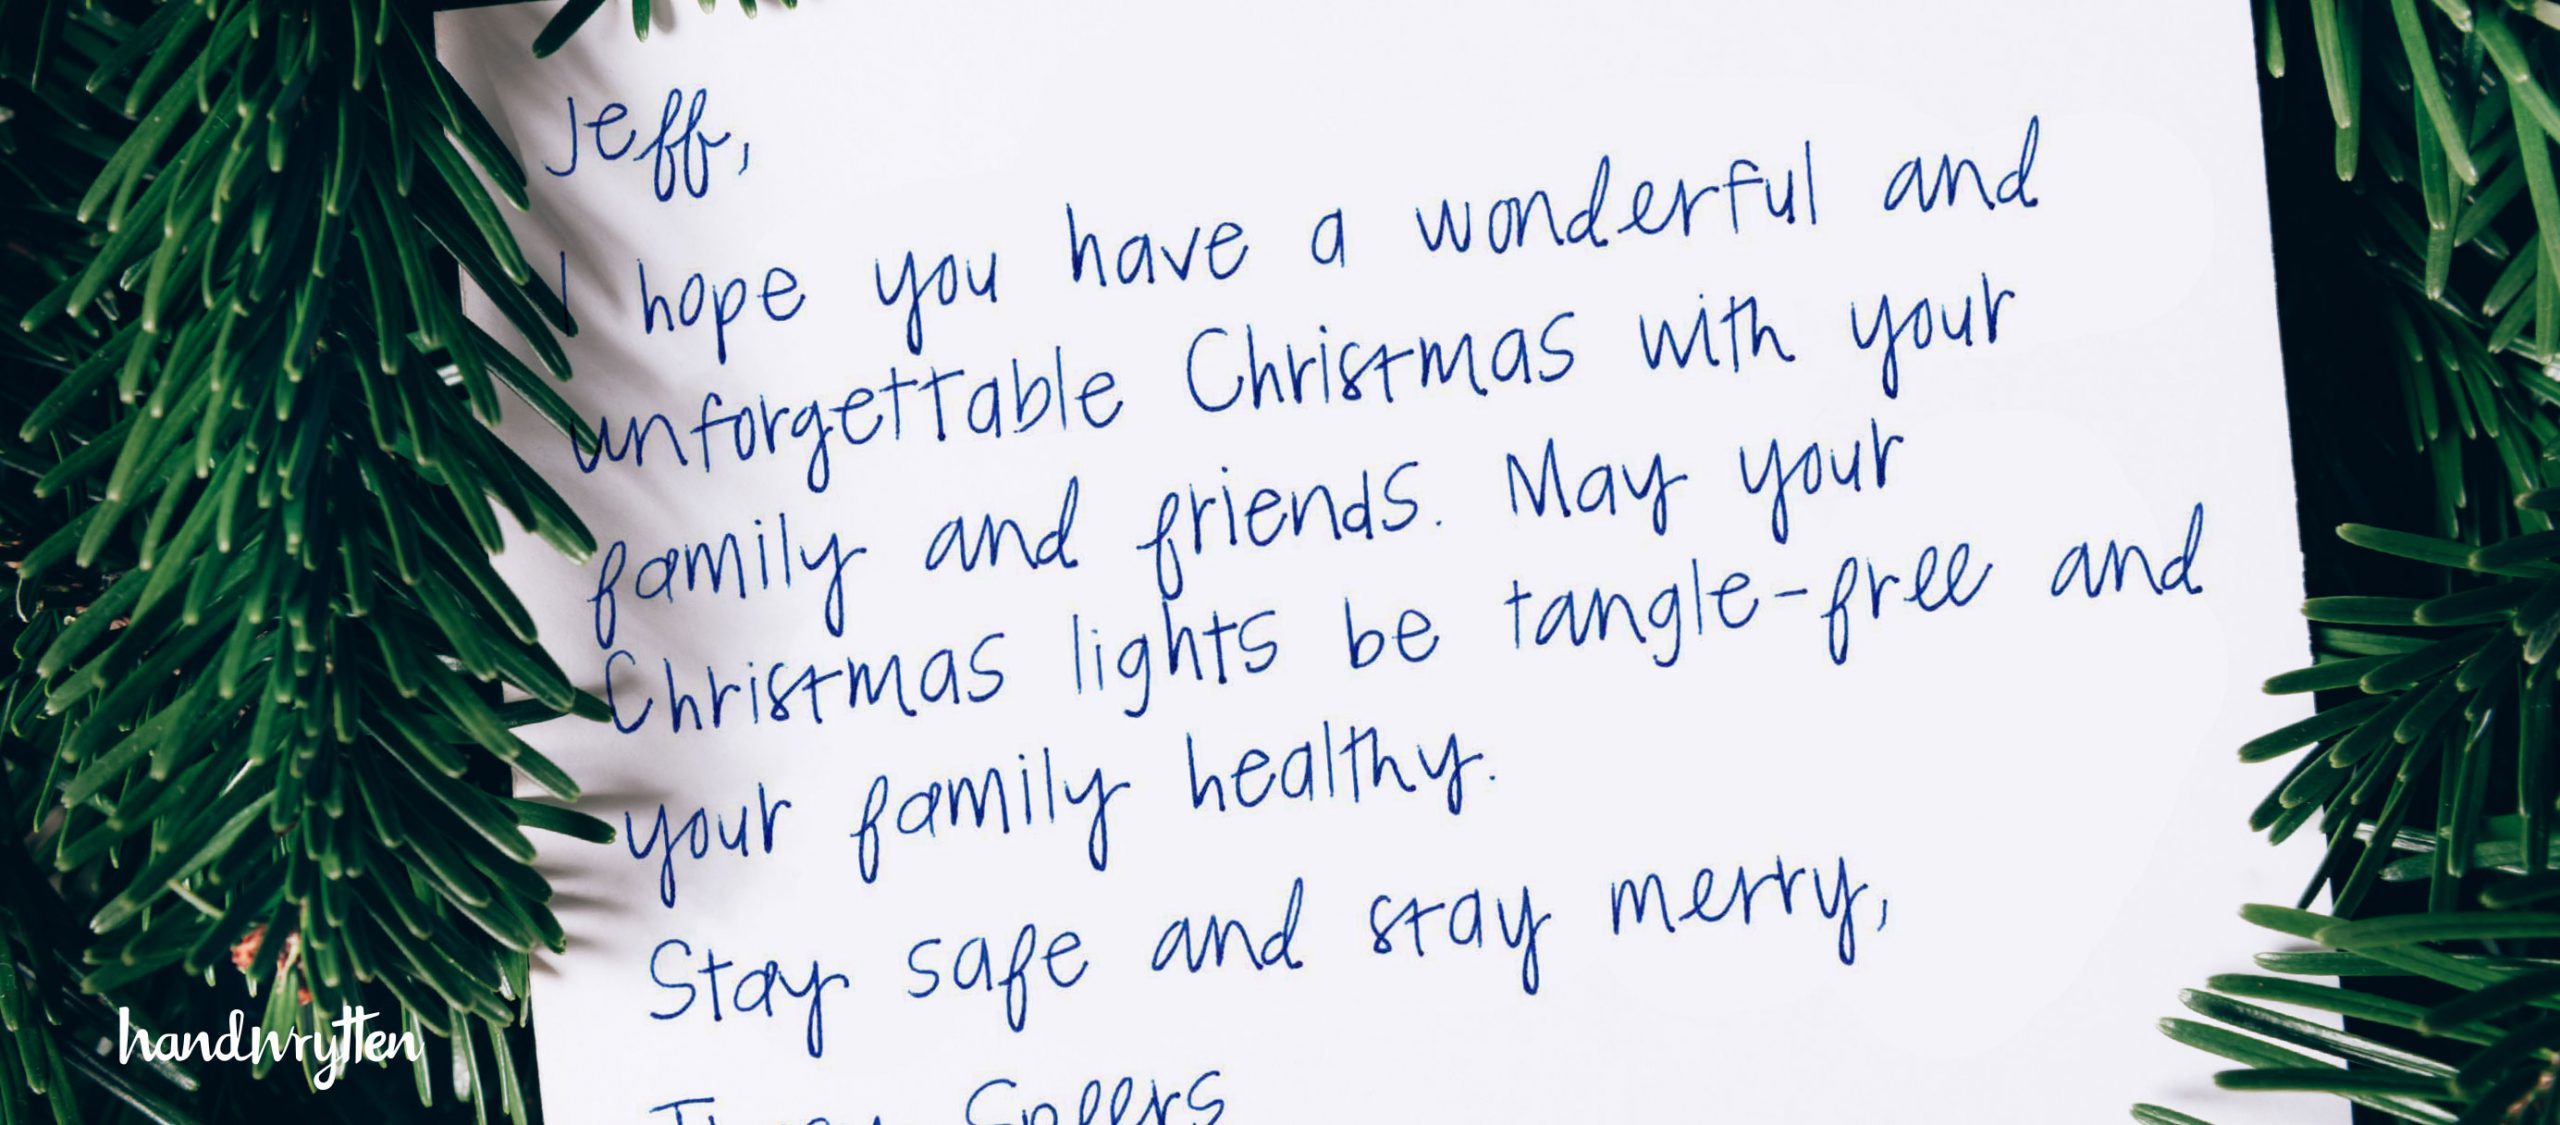 Jeff,
I hope you have a wonderful and
unforgettable Christmas with your
family and friends. May your
Christmas lights be tangle-free and
your family healthy.
Stay safe and stay merry,
Speers
handwrytten